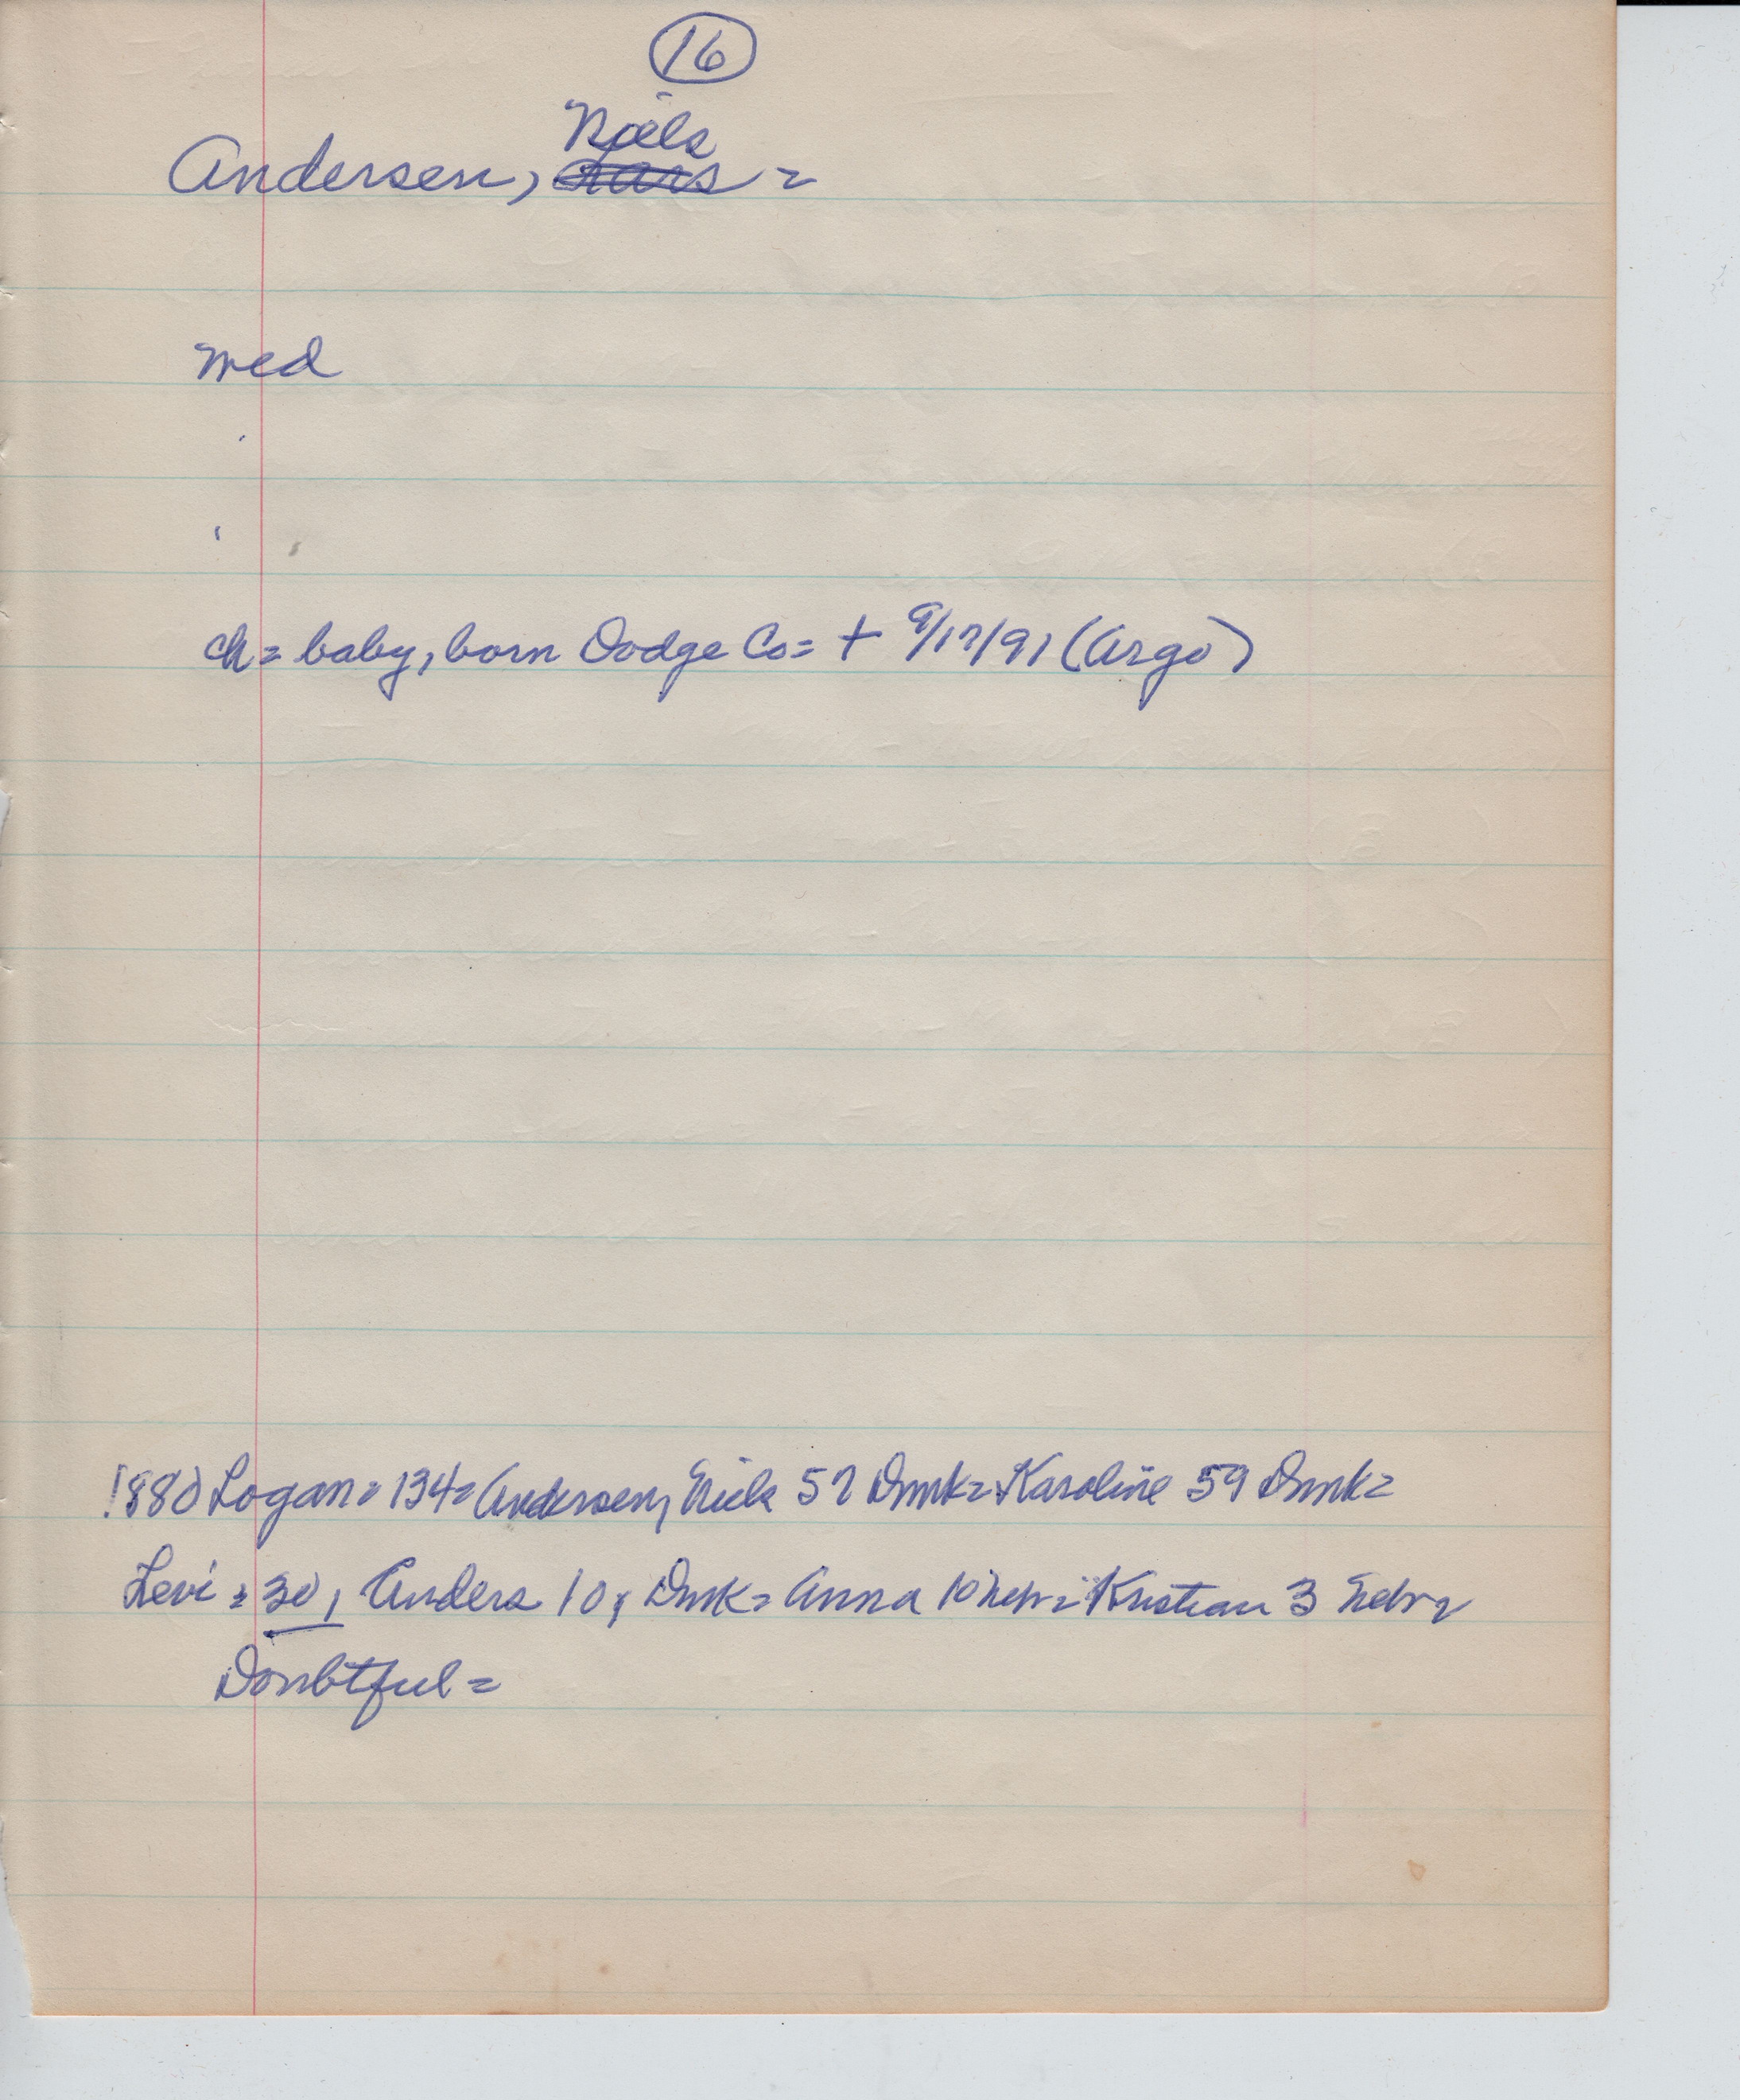 16
Niels
Andersen, Lars =
med
ch = baby, born Dodge Co = + 9/17/91 (Argo)
1880 Logan = 134 = Andersen, Niels 57 Dnmk = Karoline 59 Dnmk =
Levi = 30, Anders 10, Dnk = Anna 10 Nebr = Kristian 3 Nebr =
Doubtful =